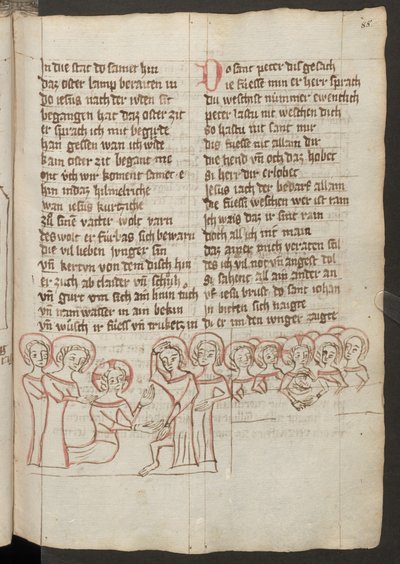 88.
In die stat do samet hin
daz oster lamp beraiten in
Do iesus nach der iuden sit
begangen hat daz oster zit
er sprach ich mit begirde
han gessen wan ich wirde
kain oster zit begant me
mit úch wir koment samet e
hin in daz himelriche
wan iesus kurtzliche
zuͦ sine vatter wolt varn
des wolt er fúrbas sich bewarn
die vil lieben iunger sin
vn̄ kertun von dem disch hin
er zuch ab claider vn̄ schuͦh
vn̄ gurt um sich ain huntuͦch
vn̄ nam wasser in ain bekin
vn̄ wuͦsch ir fuͤss vn̄ truketz in
Do sant peter dis gesach
die fuͤsse min er herr sprach
du weschst nummer ewenclich
peter lastu nit weschen dich
so hastu nit sant mir
dis fuͤsse nit allain dir
die hend vn̄ och daz hobet
si herr dir erlobet
Jesus iach der bedarf allain
die fuͤsse weschen wer ist rain
ich wais daz ir sint rain
doch all ich nit main
daz ainer mich verraten sol
des ich vil not vn̄ angest dol
si sahent all ain ander an
uf iesu brust do sant iohan
in bitten sich naigte
di er im den iunger zaigte